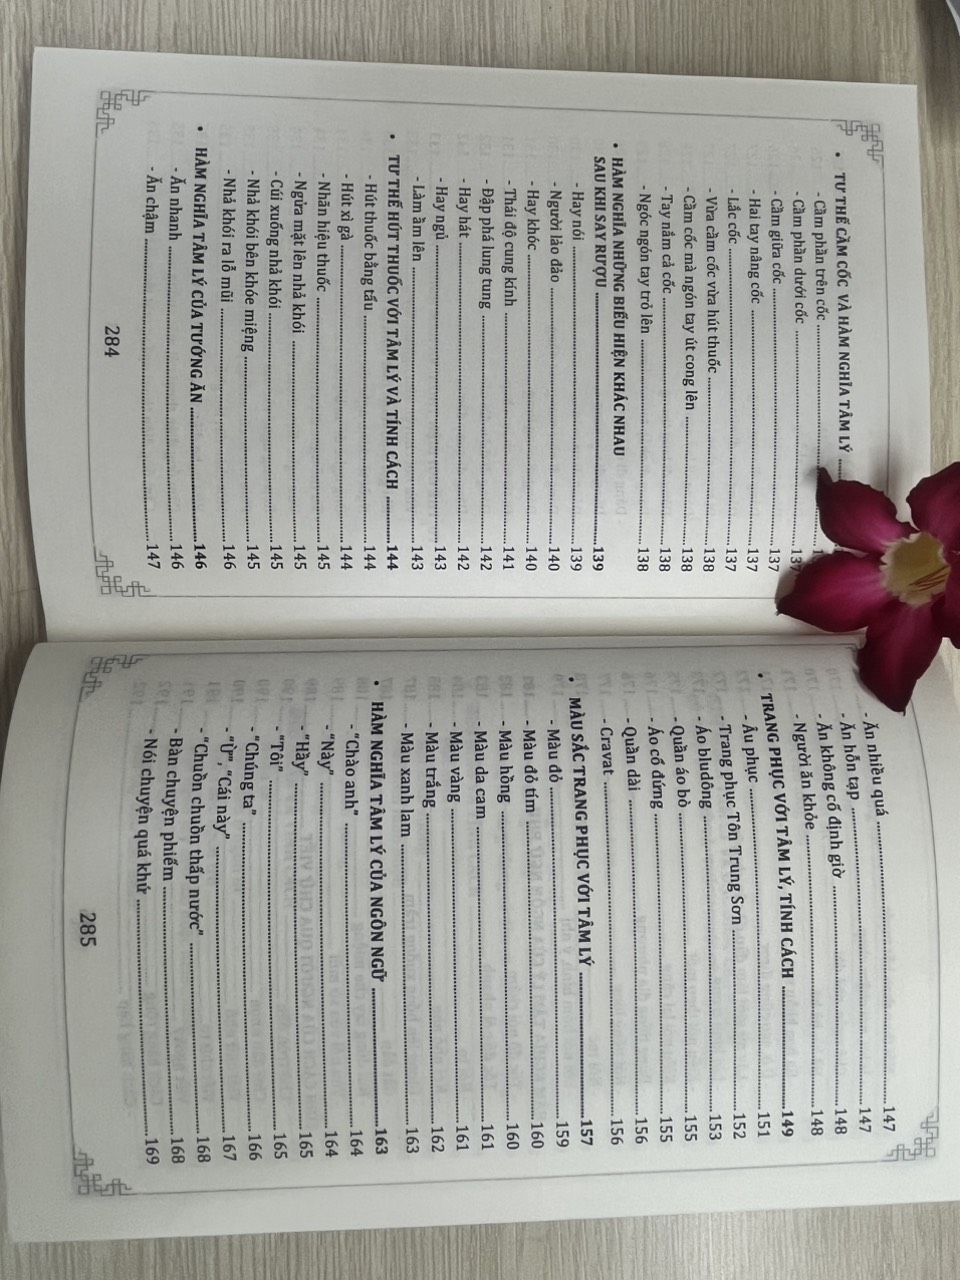 • TƯ THẾ CẦM CỐC VÀ HÀM NGHĨA TÂM LÝ
- Cầm phần trên cốc
- Cầm phần dưới cốc 137
- Cầm giữa cốc 137
- Hai tay nâng cốc 137
- Lắc cốc 137
- Vừa cầm cốc vừa hút thuốc 138
- Cầm cốc mà ngón tay út cong lên 138
- Tay nắm cả cốc 138
- Ngóc ngón tay trỏ lên 138
• HÀM NGHĨA NHỮNG BIỂU HIỆN KHÁC NHAU
SAU KHI SAY RƯỢU 139
- Hay nói 139
- Người lảo đảo 140
- Hay khóc 140
- Thái độ cung kính 141
- Đập phá lung tung 142
- Hay hát 142
- Hay ngủ 143
- Làm ầm lên 143
• TƯ THẾ HÚT THUỐC VỚI TÂM LÝ VÀ TÍNH CÁCH 144
- Hút thuốc bằng tẩu 144
- Hút xì gà 144
- Nhãn hiệu thuốc 145
- Ngửa mặt lên nhả khói 145
- Cúi xuống nhả khói 145
- Nhả khói bên khóe miệng 145
- Nhả khói ra lỗ mũi 146
• HÀM NGHĨA TÂM LÝ CỦA TƯỚNG ĂN 146
- Ăn nhanh 146
- Ăn chậm 147
284
- Ăn nhiều quá 147
- Ăn hỗn tạp 147
- Ăn không cố định giờ 148
- Người ăn khỏe 148
• TRANG PHỤC VỚI TÂM LÝ, TÍNH CÁCH 149
- Âu phục 151
- Trang phục Tôn Trung Sơn 152
- Áo bludông 153
- Quần áo bò 155
- Áo cổ đứng 155
- Quần dài 156
- Cravat 156
• MÀU SẮC TRANG PHỤC VỚI TÂM LÝ 157
- Màu đỏ 159
- Màu đỏ tím 160
- Màu hồng 160
- Màu da cam 161
- Màu vàng 161
- Màu trắng 162
- Màu xanh lam 163
• HÀM NGHĨA TÂM LÝ CỦA NGÔN NGỮ 163
- "Chào anh" 164
- "Này" 164
- "Hầy" 165
- "Tôi" 165
- "Chúng ta" 166
- "Ừ", "Cái này" 167
- "Chuồn chuồn thấp nước" 168
- Bàn chuyện phiếm 168
- Nói chuyện quá khứ 169
285